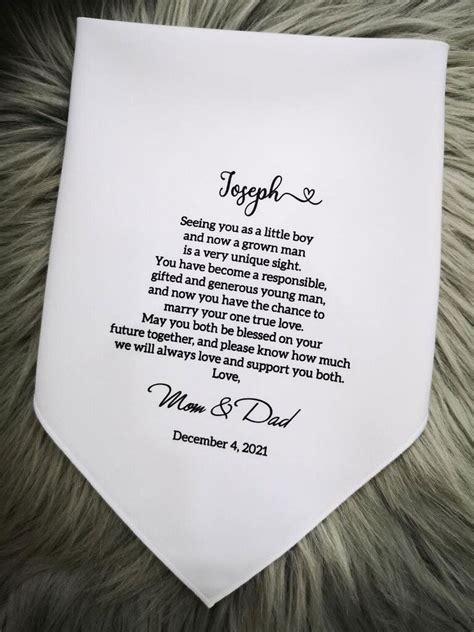 Joseph
Seeing you as a little boy
and now a grown man
is a very unique sight.
You have become a responsible,
gifted and generous young man,
and now you have the chance to
marry your one true love.
May you both be blessed on your
future together, and please know how much
we will always love and support you both.
Love,
Mom & Dad
December 4, 2021